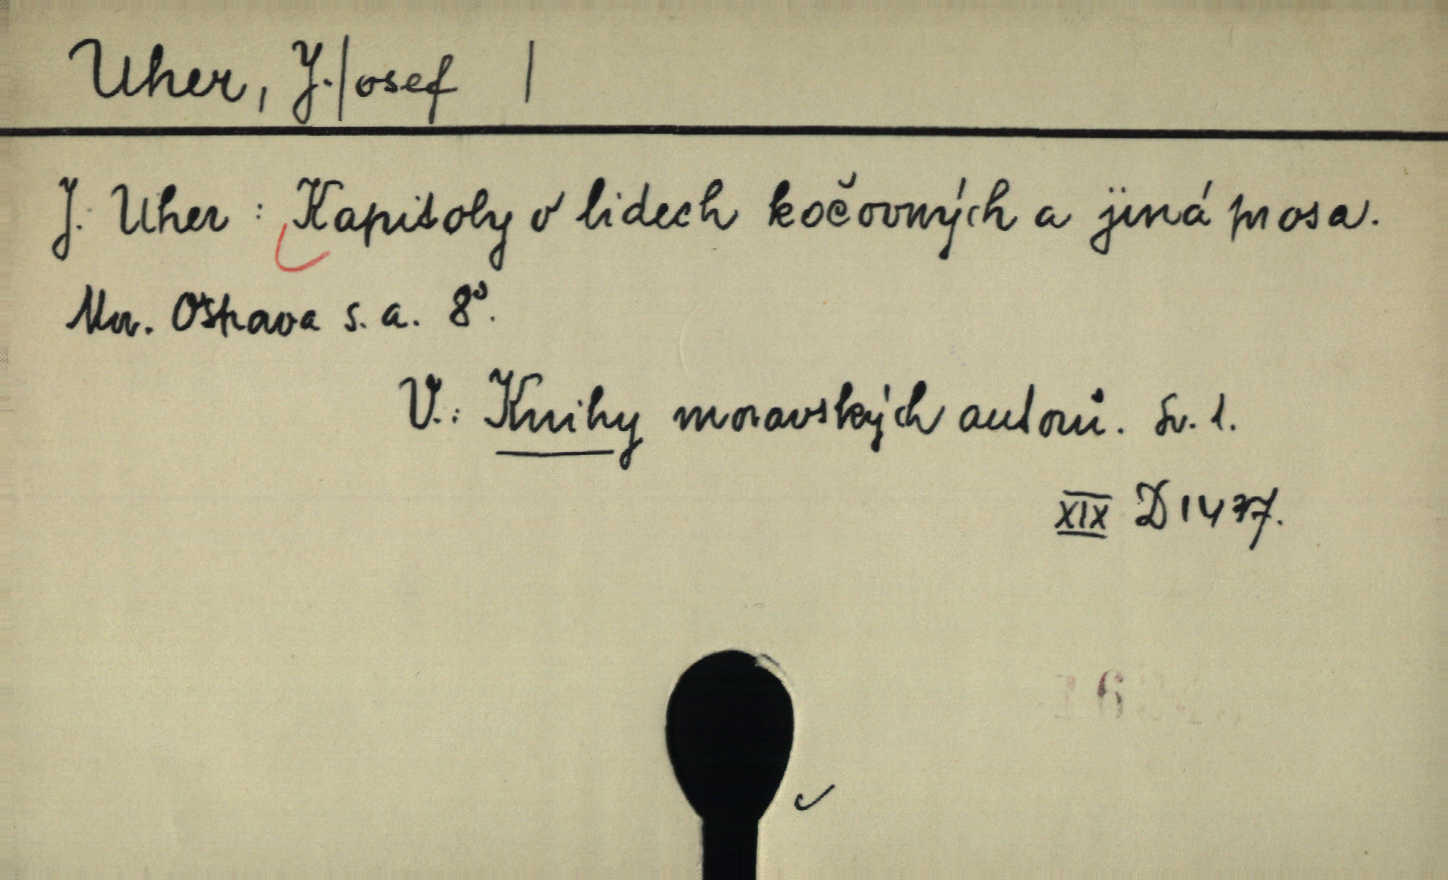 Uher, J.|osef |
J. Uher: Kapitoly o lidech kočovných a jiná prosa.
Mor. Ostrava s. a. 8°.
V.: Knihy moravských autorů. Sv. 1.
XIX D 1477.